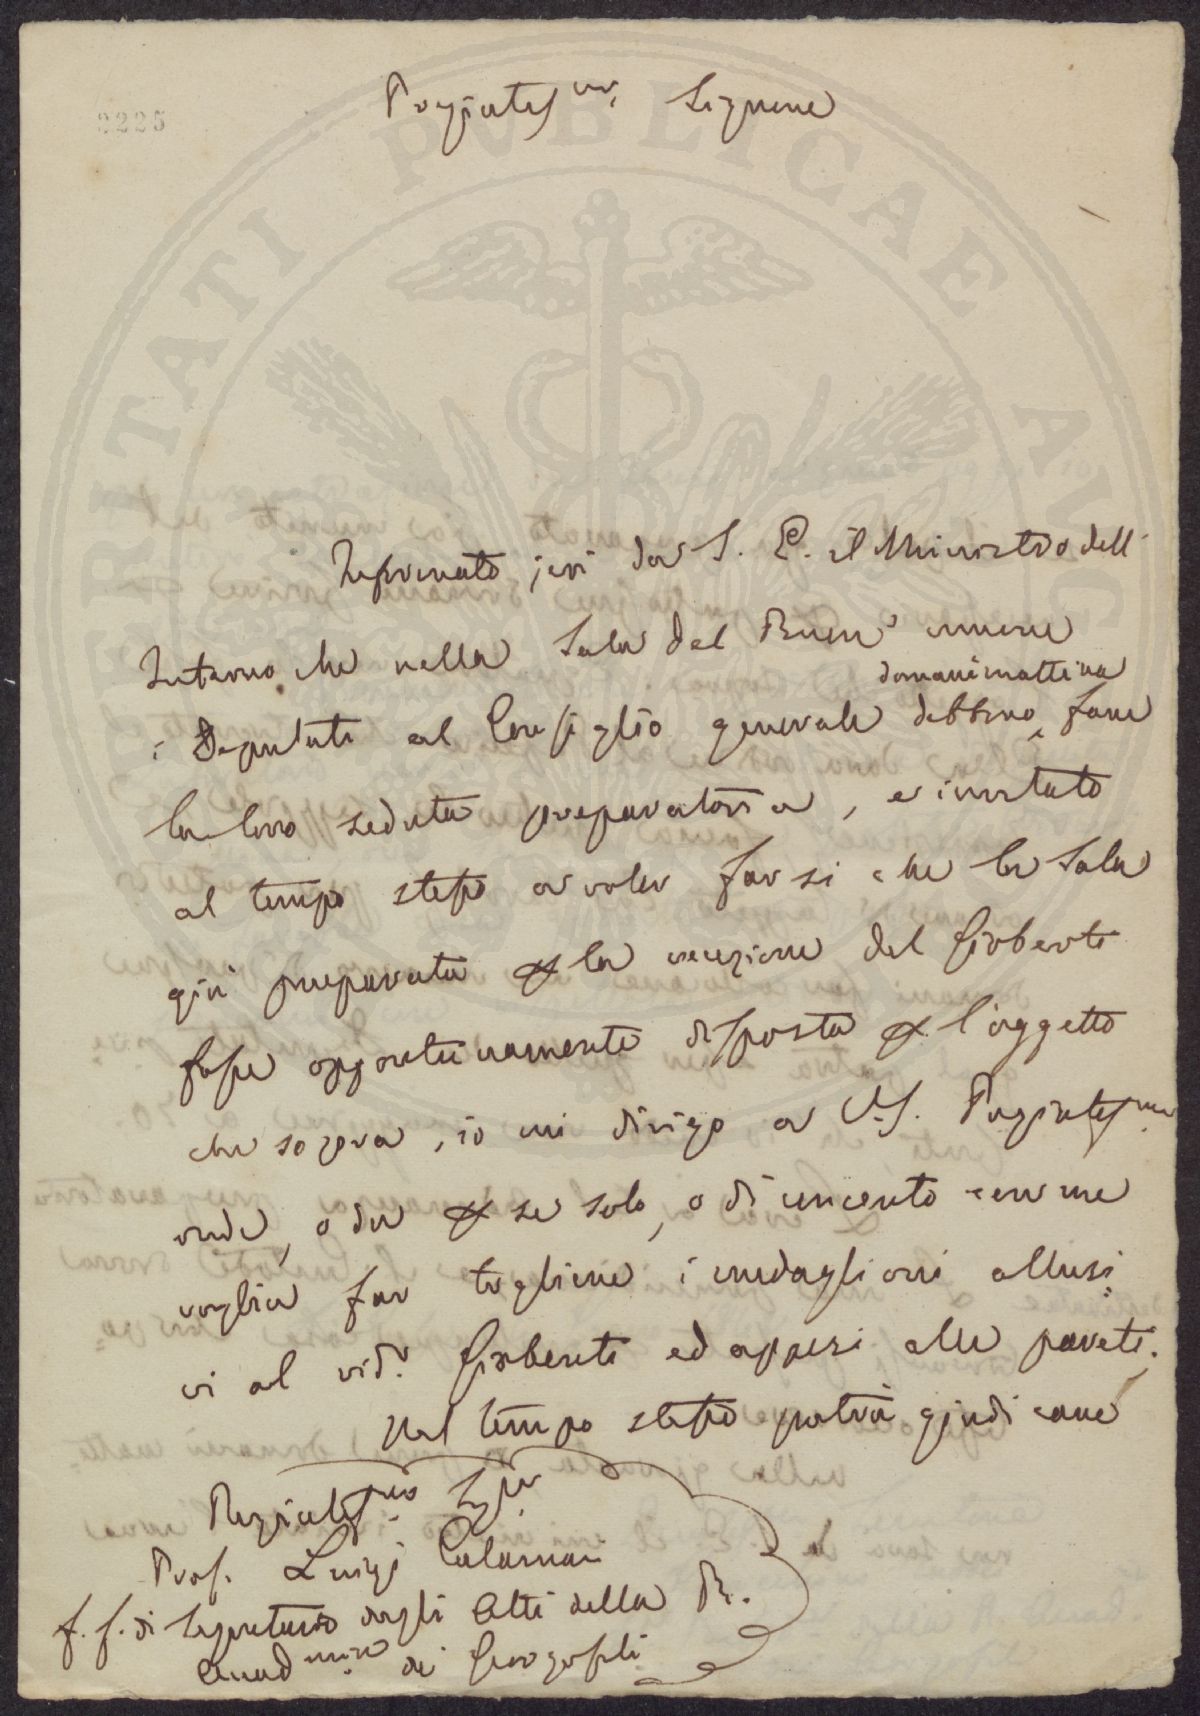 PROSPERITATI PVBLICAE AVGENDAE
2225
Pregiatis.mo Signore
Informato jeri da S. E. il Ministro dell'
Interno che nella Sala del Buon' umore
domani mattina
i Deputati al Consiglio generale debbono fare
la loro seduta preparatoria, e invitato
al tempo stesso a voler far si che la Sala
già preparata per la recezione del Gioberti
fosse opportunamente disposta per l'oggetto
che sopra, io mi dirigo a V. S. Pregiatis.ma
onde, o da per se solo, o di concerto con me
voglia far togliere i medaglioni allusi
vi al vid.o Gioberti ed appesi alle pareti.
Nel tempo stesso potrà giudicare
Pregiatis.mo Sig.r
Prof. Luigi Calamai
f. f. di Segretario degli Atti della R.
Accad.mia dei Georgofili